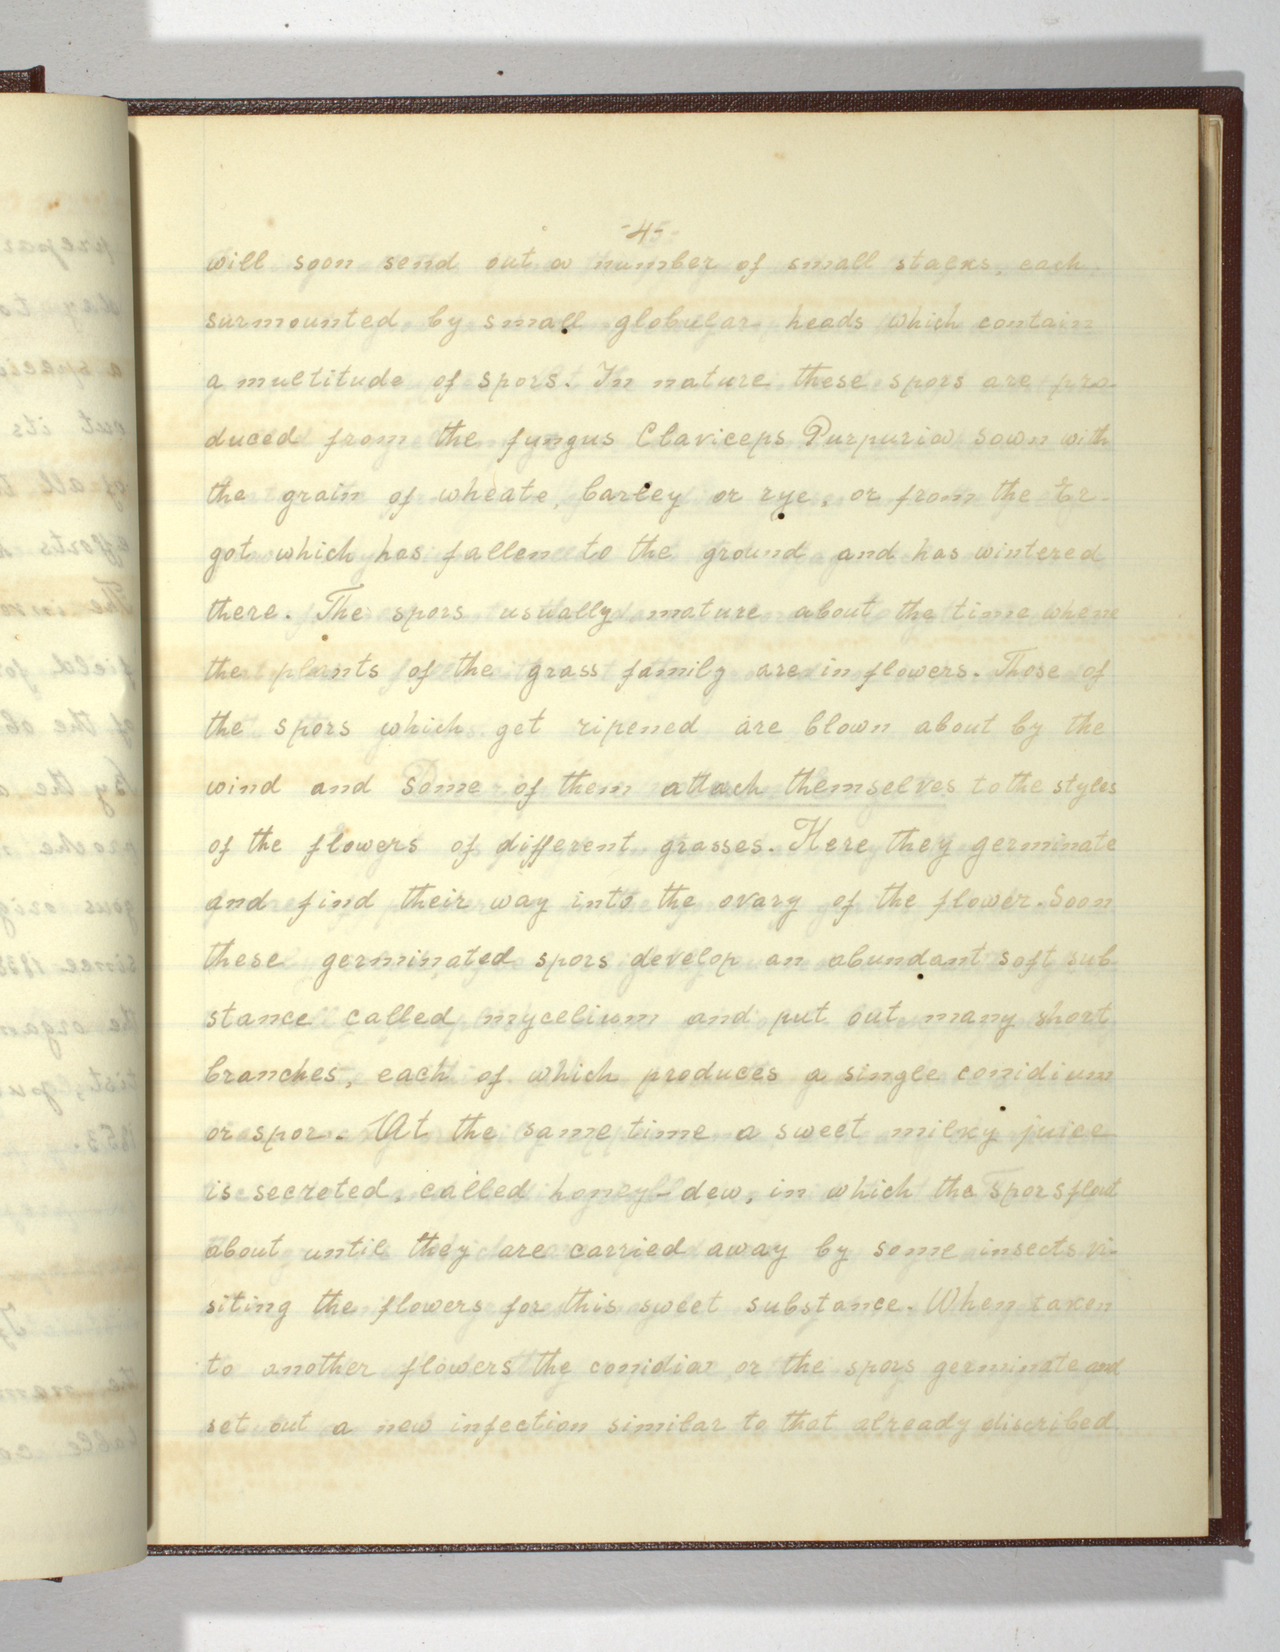 -4-
will soon send out a number of small stalks, each
surmounted by small globular heads which contain
a multitude of spors. In nature these spors are pro-
duced from the fungus Claviceps Purpuria sown with
the grain of wheate, barley or rye, or from the Er-
got which has fallen to the ground and has wintered
there. The spors usually mature about the time where
the plants of the grass family are in flowers. Those of
the spors which get ripened are blown about by the
wind and some of them attach themselves to the styles
of the flowers of different grasses. Here they germinate
and find their way into the ovary of the flower. Soon
these germinated spors develop an abundant soft sub
stance called mycelium and put out many short
branches, each of which produces a single conidium
or spor. At the same time a sweet milky juice
is secreted, called honey-dew, in which the spors float
about until they are carried away by some insects vi-
siting the flowers for this sweet substance. When taken
to another flowers the conidia or the spors germinate and
set out a new infection similar to that already discribed